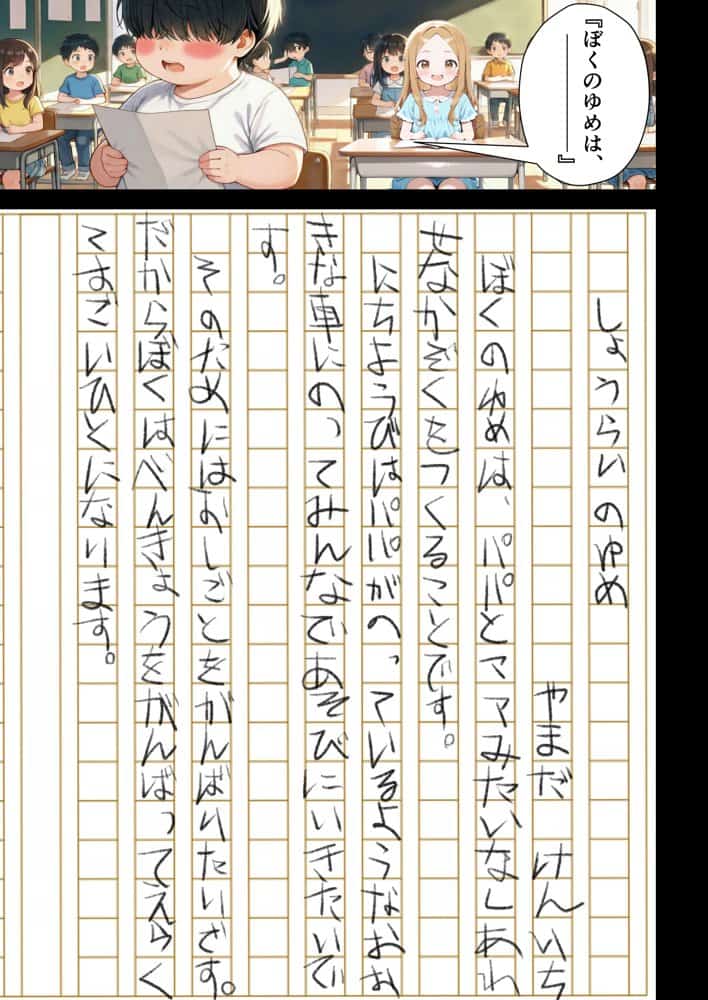 『ぼくのゆめは、
―――――――』
しょうらいのゆめ
やまだ けんいち
ぼくのゆめは、パパとママみたいなしあわ
せなかぞくをつくることです。
にちようびはパパがのっているようなおお
きな車にのってみんなであそびにいきたいで
す。
そのためにはおしごとをがんばりたいです。
だからぼくはべんきょうをがんばってえらく
てすごいひとになります。